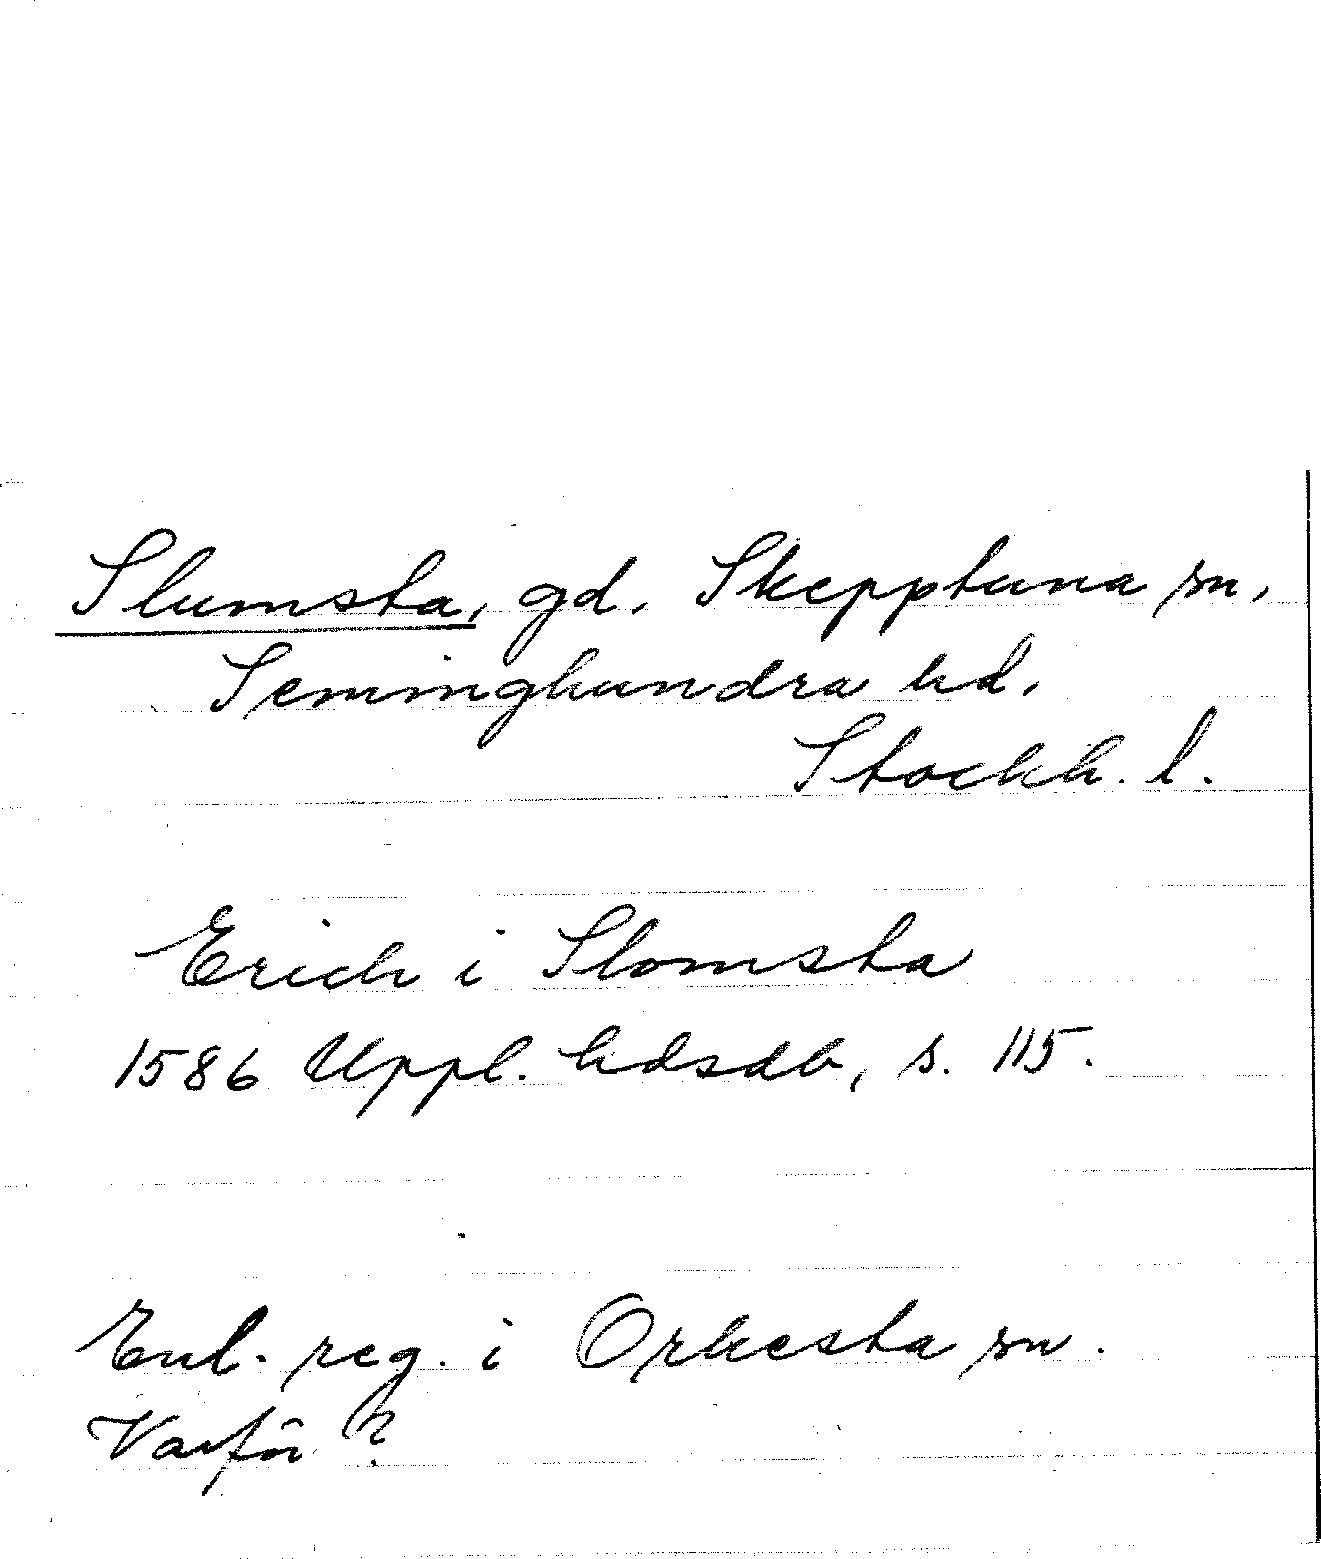 Slumsta, gd. Skepptuna sn,
Seminghundra hd.
Stockh. l.
Erich i Slomsta
1586 Uppl. hdsdb, s. 115.
Enl. reg. i Orkesta sn.
Varför?